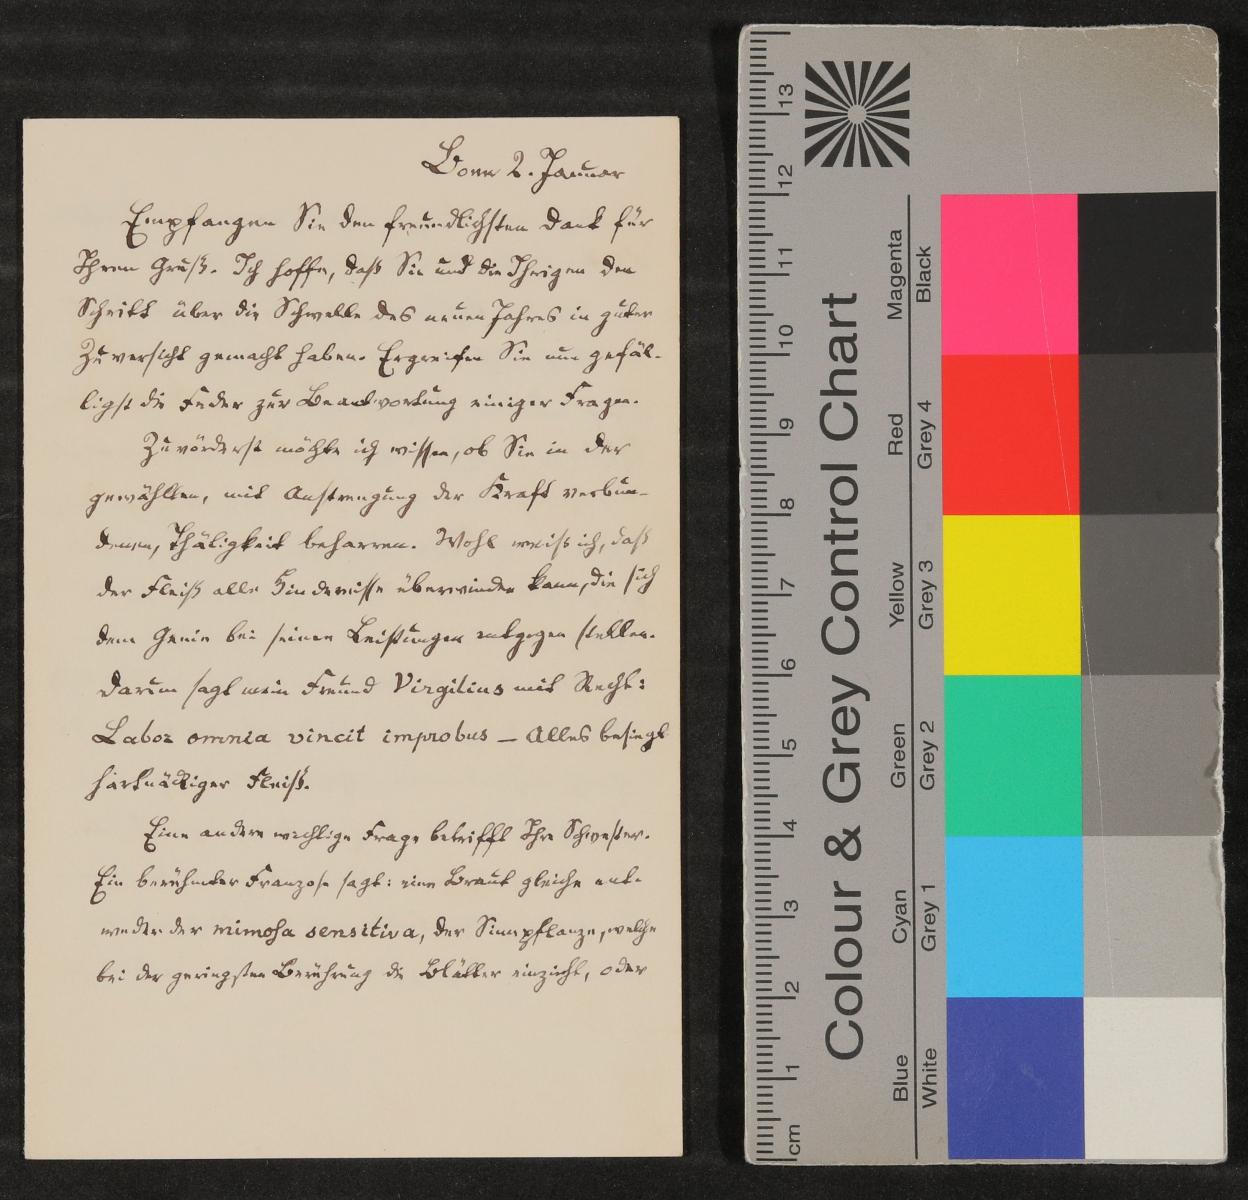 Bonn 2. Januar
Empfangen Sie den freundlichsten Dank für
Ihren Gruß. Ich hoffe, daß Sie und die Ihrigen den
Schritt über die Schwelle des neuen Jahres in guter
Zuversicht gemacht haben. Ergreifen Sie nun gefäl-
ligst die Feder zur Beantwortung einiger Fragen.
Zuvörderst möchte ich wissen, ob Sie in der
gewählten, mit Anstrengung der Kraft verbun-
denen, Thätigkeit beharren. Wohl weiß ich, daß
der Fleiß alle Hindernisse überwinden kann, die sich
dem Genie bei seinen Leistungen entgegen stellen.
Darum sagt mein Freund Virgilius mit Recht:
Labor omnia vincit improbus — Alles besiegt
hartnäckiger Fleiß.
Eine andere wichtige Frage betrifft Ihre Schwester.
Ein berühmter Franzose sagt: eine Braut gleiche ent-
weder der mimosa sensitiva, der Sinnpflanze, welche
bei der geringsten Berührung die Blätter einzieht, oder
Colour & Grey Control Chart
Blue Cyan Green Yellow Red Magenta
White Grey 1 Grey 2 Grey 3 Grey 4 Black
cm 1 2 3 4 5 6 7 8 9 10 11 12 13